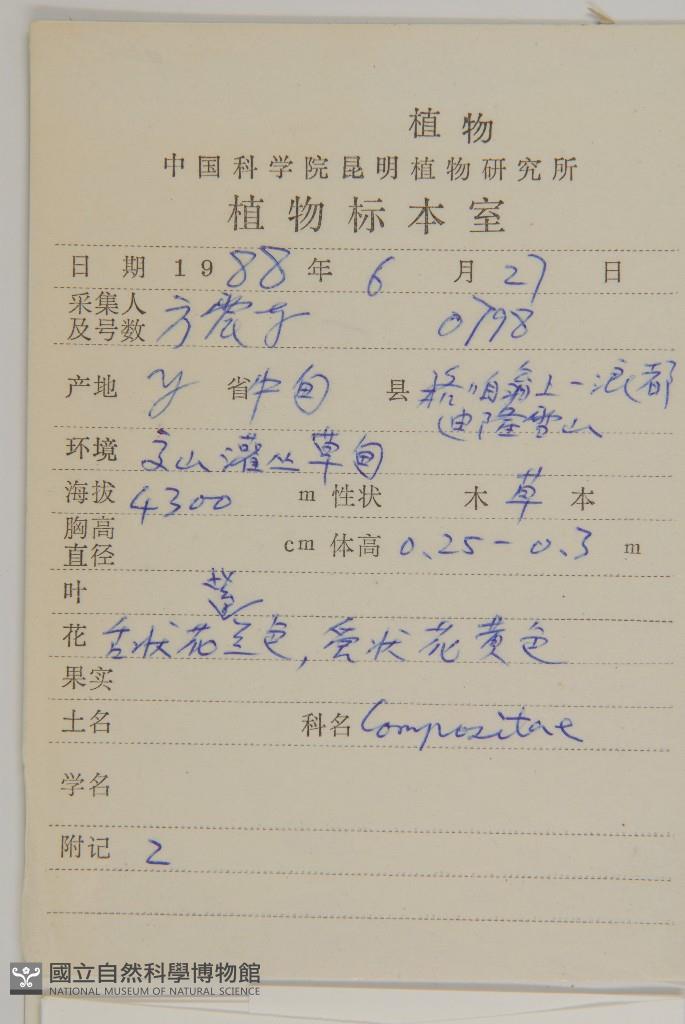 植物
中国科学院昆明植物研究所
植物标本室
日 期 1988 年 6 月 27 日
采集人
及号数 方震东 0798
产地 Y 省 中甸 县 格咱翁上一浪都
迪隆雪山
环境 高山灌丛草甸
海拔 4300 m 性状 木 草 本
胸高
直径 cm 体高 0.25-0.3 m
叶
紫
花 舌状花兰色, 管状花黄色
果实
土名 科名 Compositae
学名
附记 2
國立自然科學博物館
NATIONAL MUSEUM OF NATURAL SCIENCE